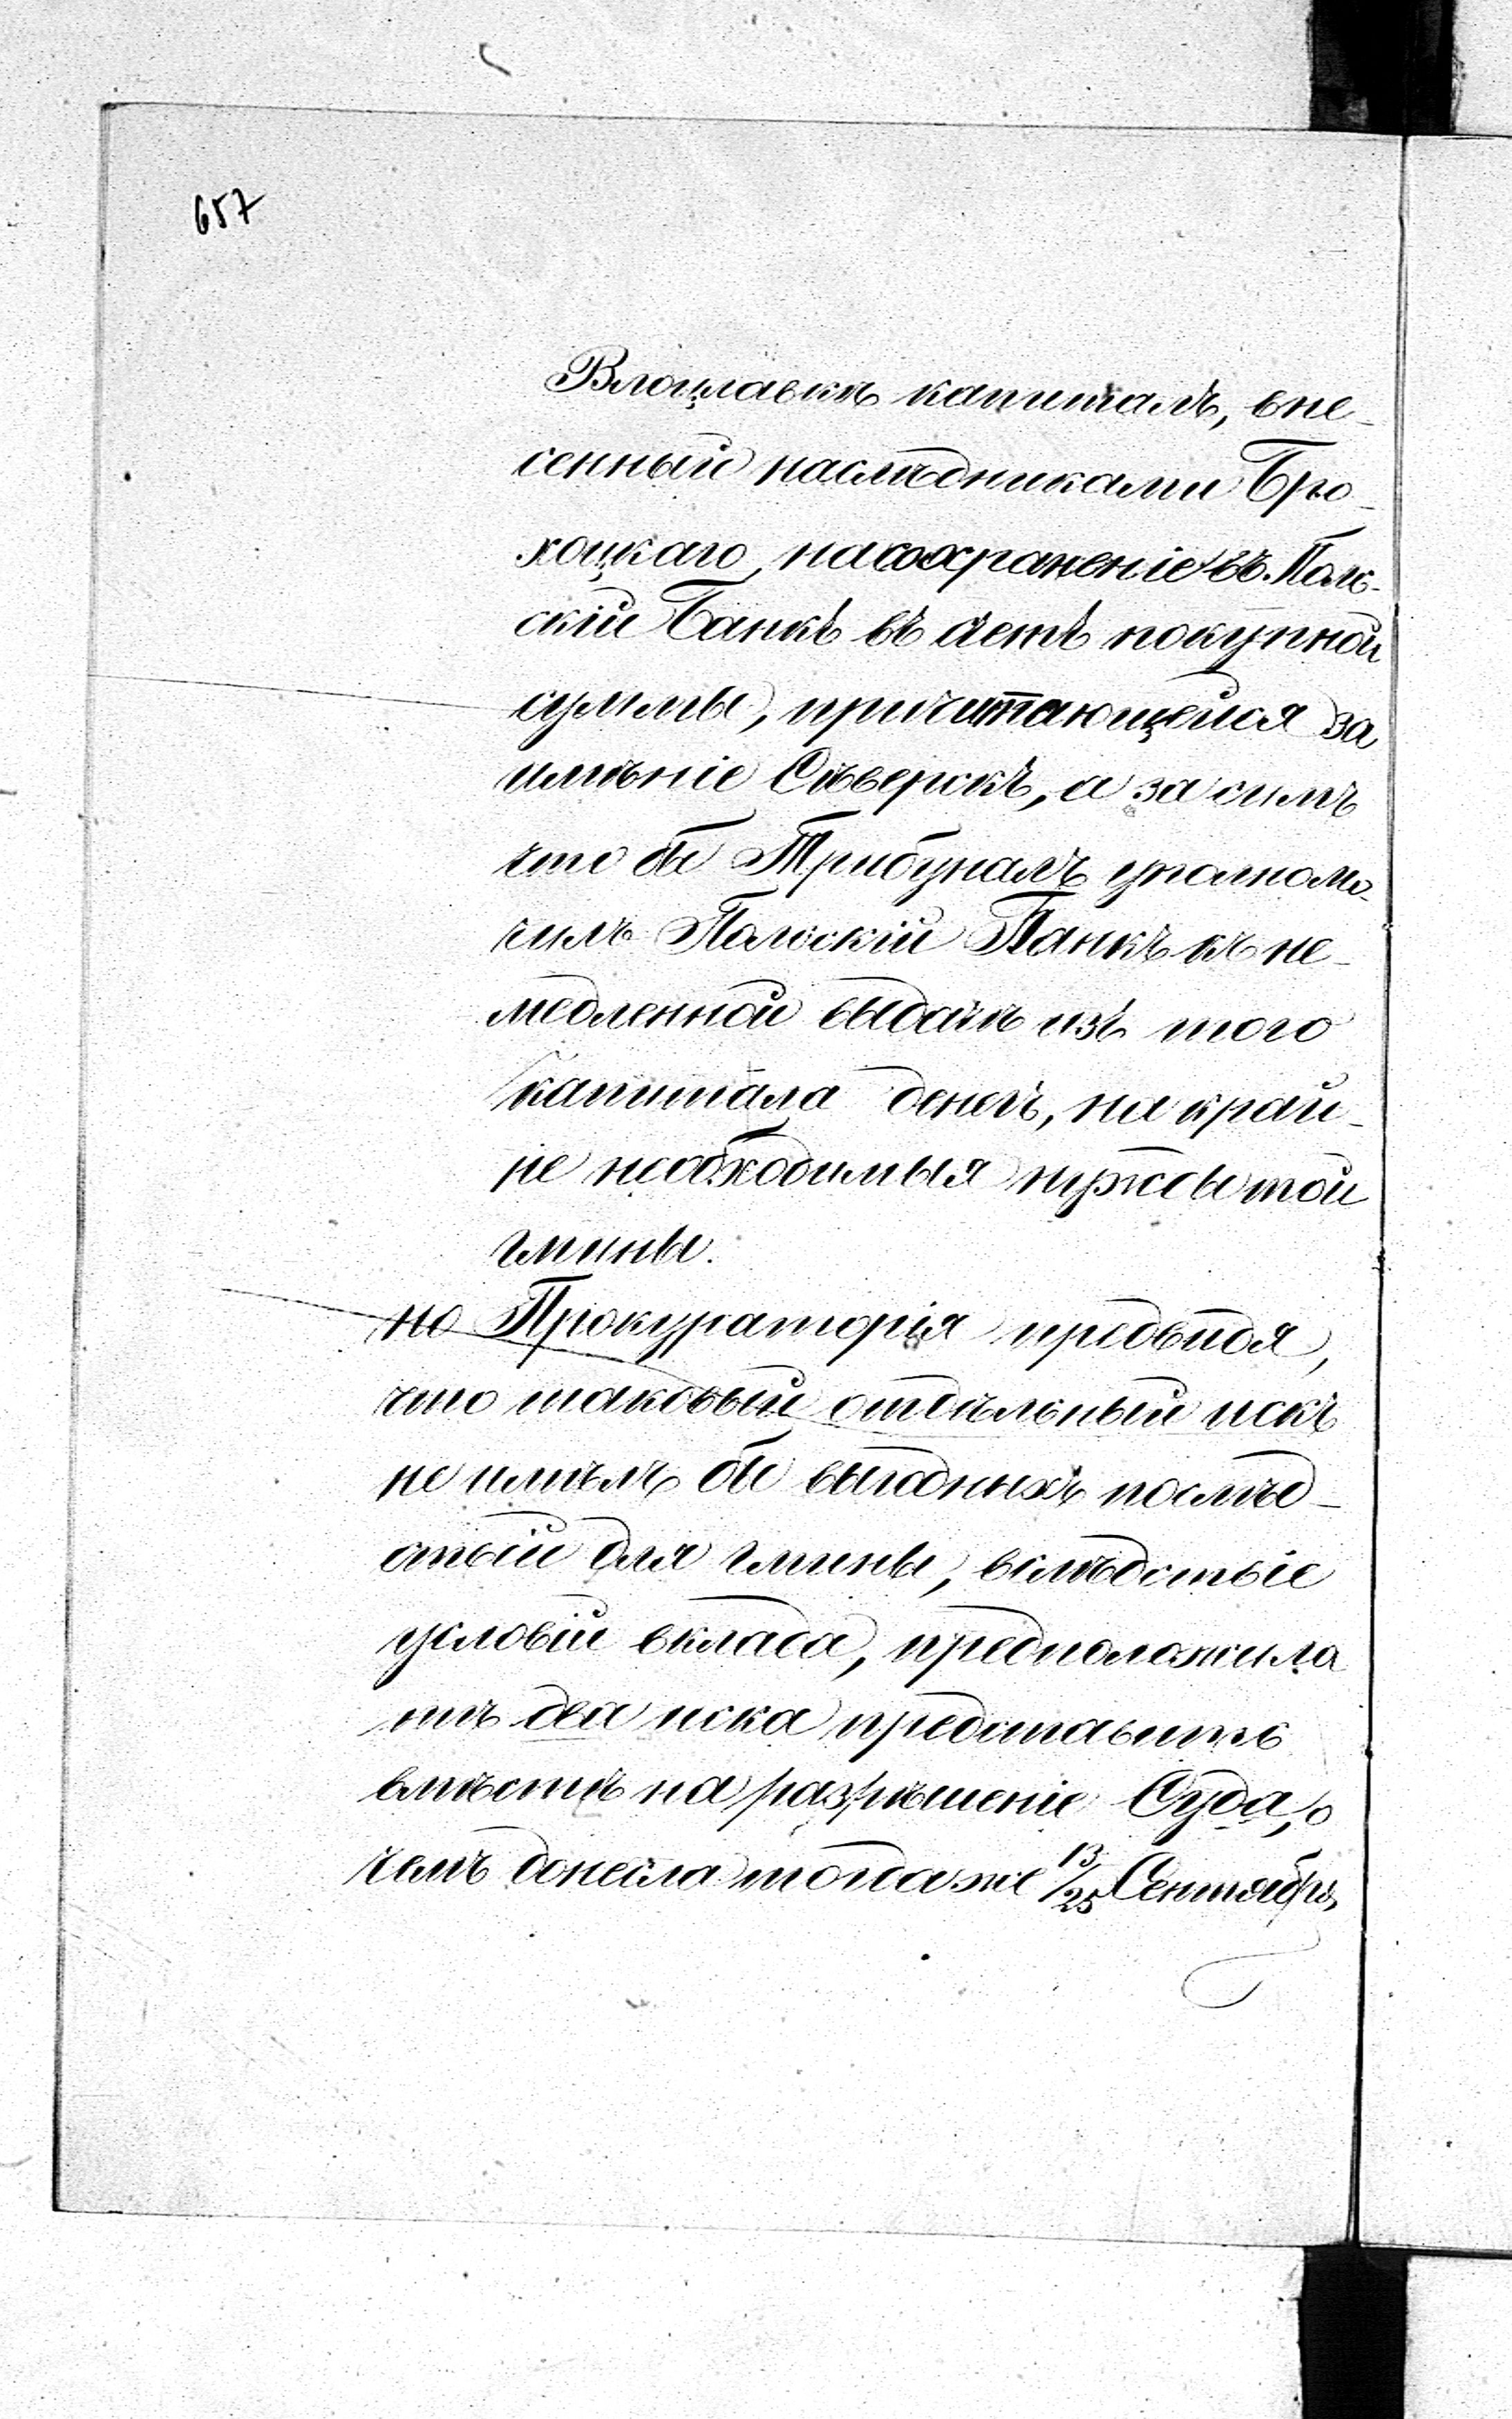 657
Влоцлавкѣ капиталъ, вне-
сенный наслѣдниками Бро-
хоцкаго, на сохраненіе въ Поль-
скій Банкъ въ счетъ покупной
суммы, причитающейся за
имѣніе Сѣверскъ, а за симъ
что бы Трибуналъ уполномо-
чилъ Польскій Панкъ къ не-
медленной выдачѣ изъ того
капитала денегъ, на край-
не необходимыя нужды той
гмины.
но Прокураторія предвидя,
что таковый отдѣльный искъ
не имѣлъ бы выгодныхъ послѣд-
ствій для гмины, вслѣдствіе
условій вклада, предположила
тѣ два иска представить
вмѣстѣ на разрѣшеніе Суда, о
чемъ донесла тогда же 13/25 Сентября